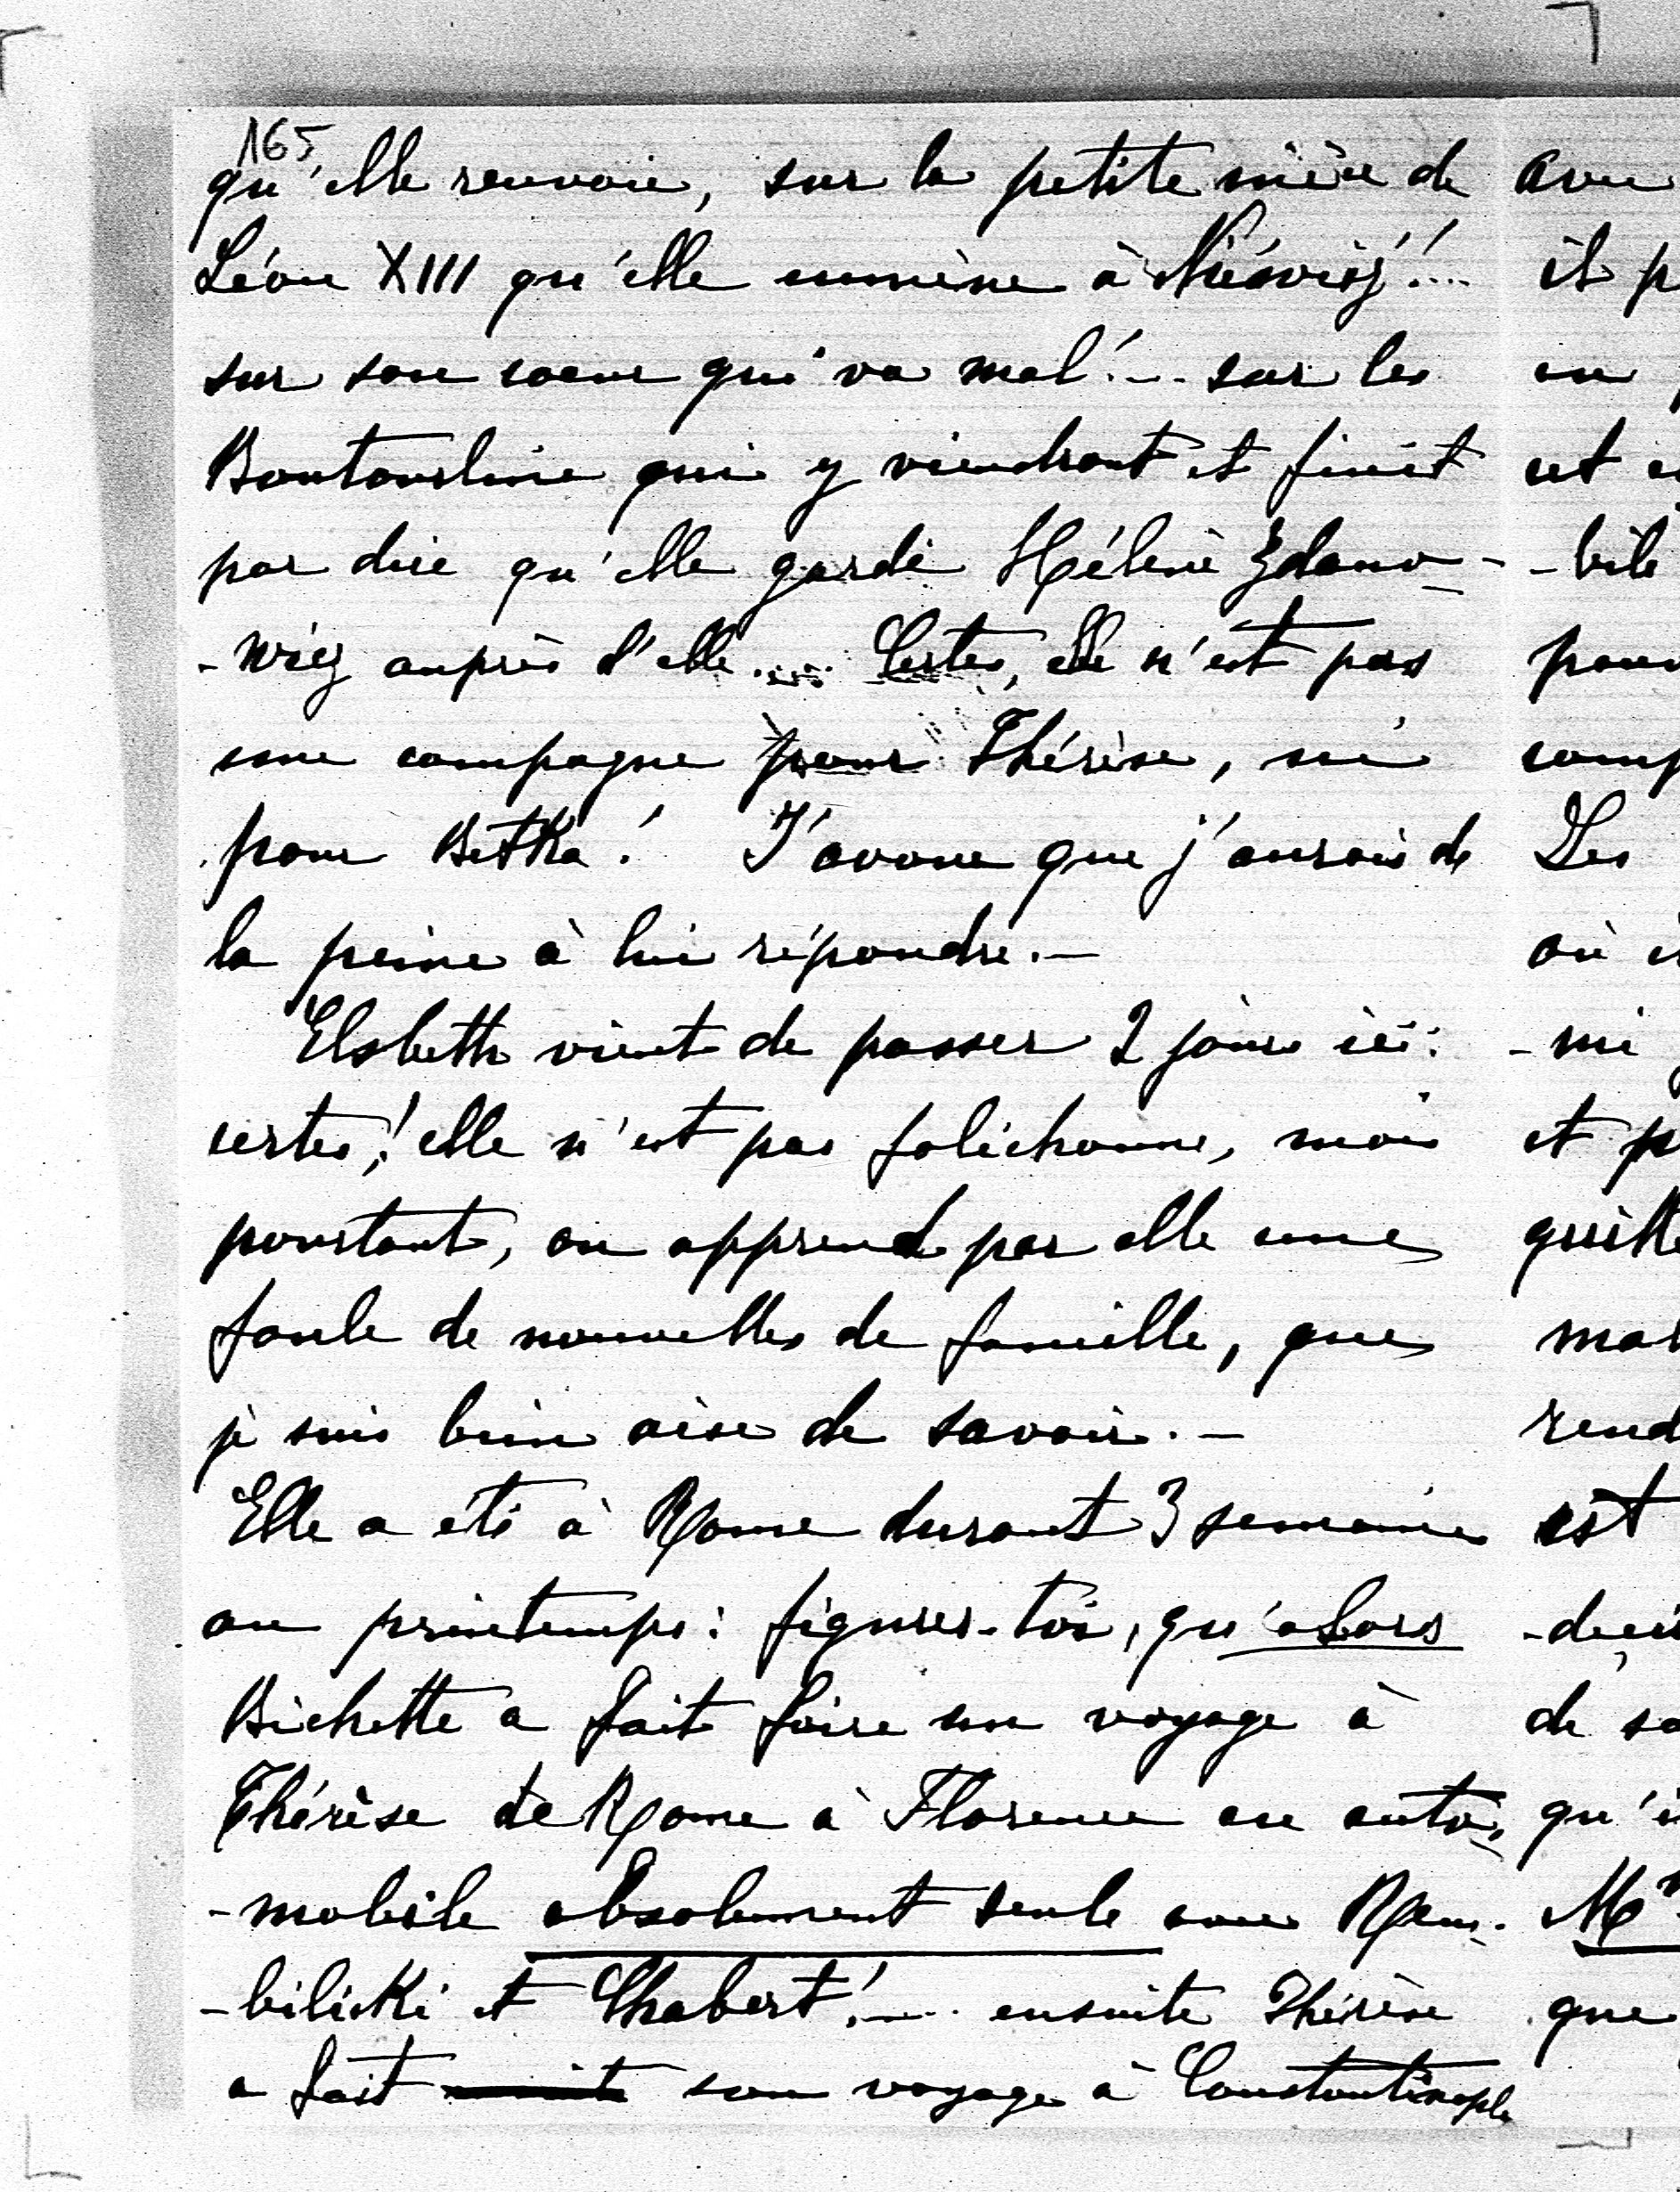 165
qu'elle renvoie, sur la petite nièce de
Léon XIII qu'elle emmène à Niéswiéz!...
sur son coeur qui va mal!... sur les
Boutourline qui y viendront et finit
par dire qu'elle garde Hélène Zdano-
-wiez auprès d'elle.... Certes, elle n'est pas
une compagne pour Thérèse, ni
pour Betka! J'avoue que j'aurais de
la peine à lui répondre.-
Elsbeth vient de passer 2 jours ici:
certes,! elle n'est pas folichonne, mais
pourtant, on apprend par elle une
foule de nouvelles de famille, que
je suis bien aise de savoir.-
Elle a été à Rome durant 3 semaines
au printemps: figures-toi, qu'alors
Bichette a fait faire un voyage à
Thérèse de Rome à Florence en auto-
-mobile absolument seule avec Rem-
-bilicki et Chabert!... ensuite Thérèse
a fait son voyage à Constantinople
avec
il p
en
cet
-bile
pour
comp
Les
où
-mi
et p
quitte
mal
rend
est
de sa
qu'
que